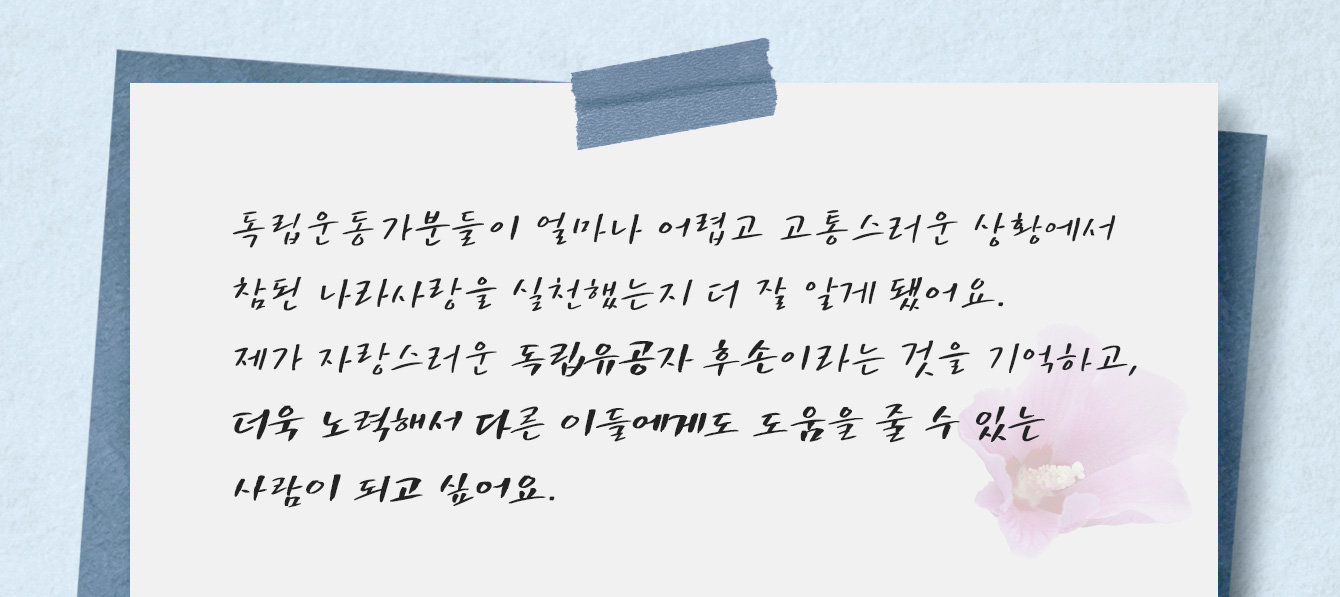 독립운동가분들이 얼마나 어렵고 고통스러운 상황에서
참된 나라사랑을 실천했는지 더 잘 알게 됐어요.
제가 자랑스러운 독립유공자 후손이라는 것을 기억하고,
더욱 노력해서 다른 이들에게도 도움을 줄 수 있는
사람이 되고 싶어요.